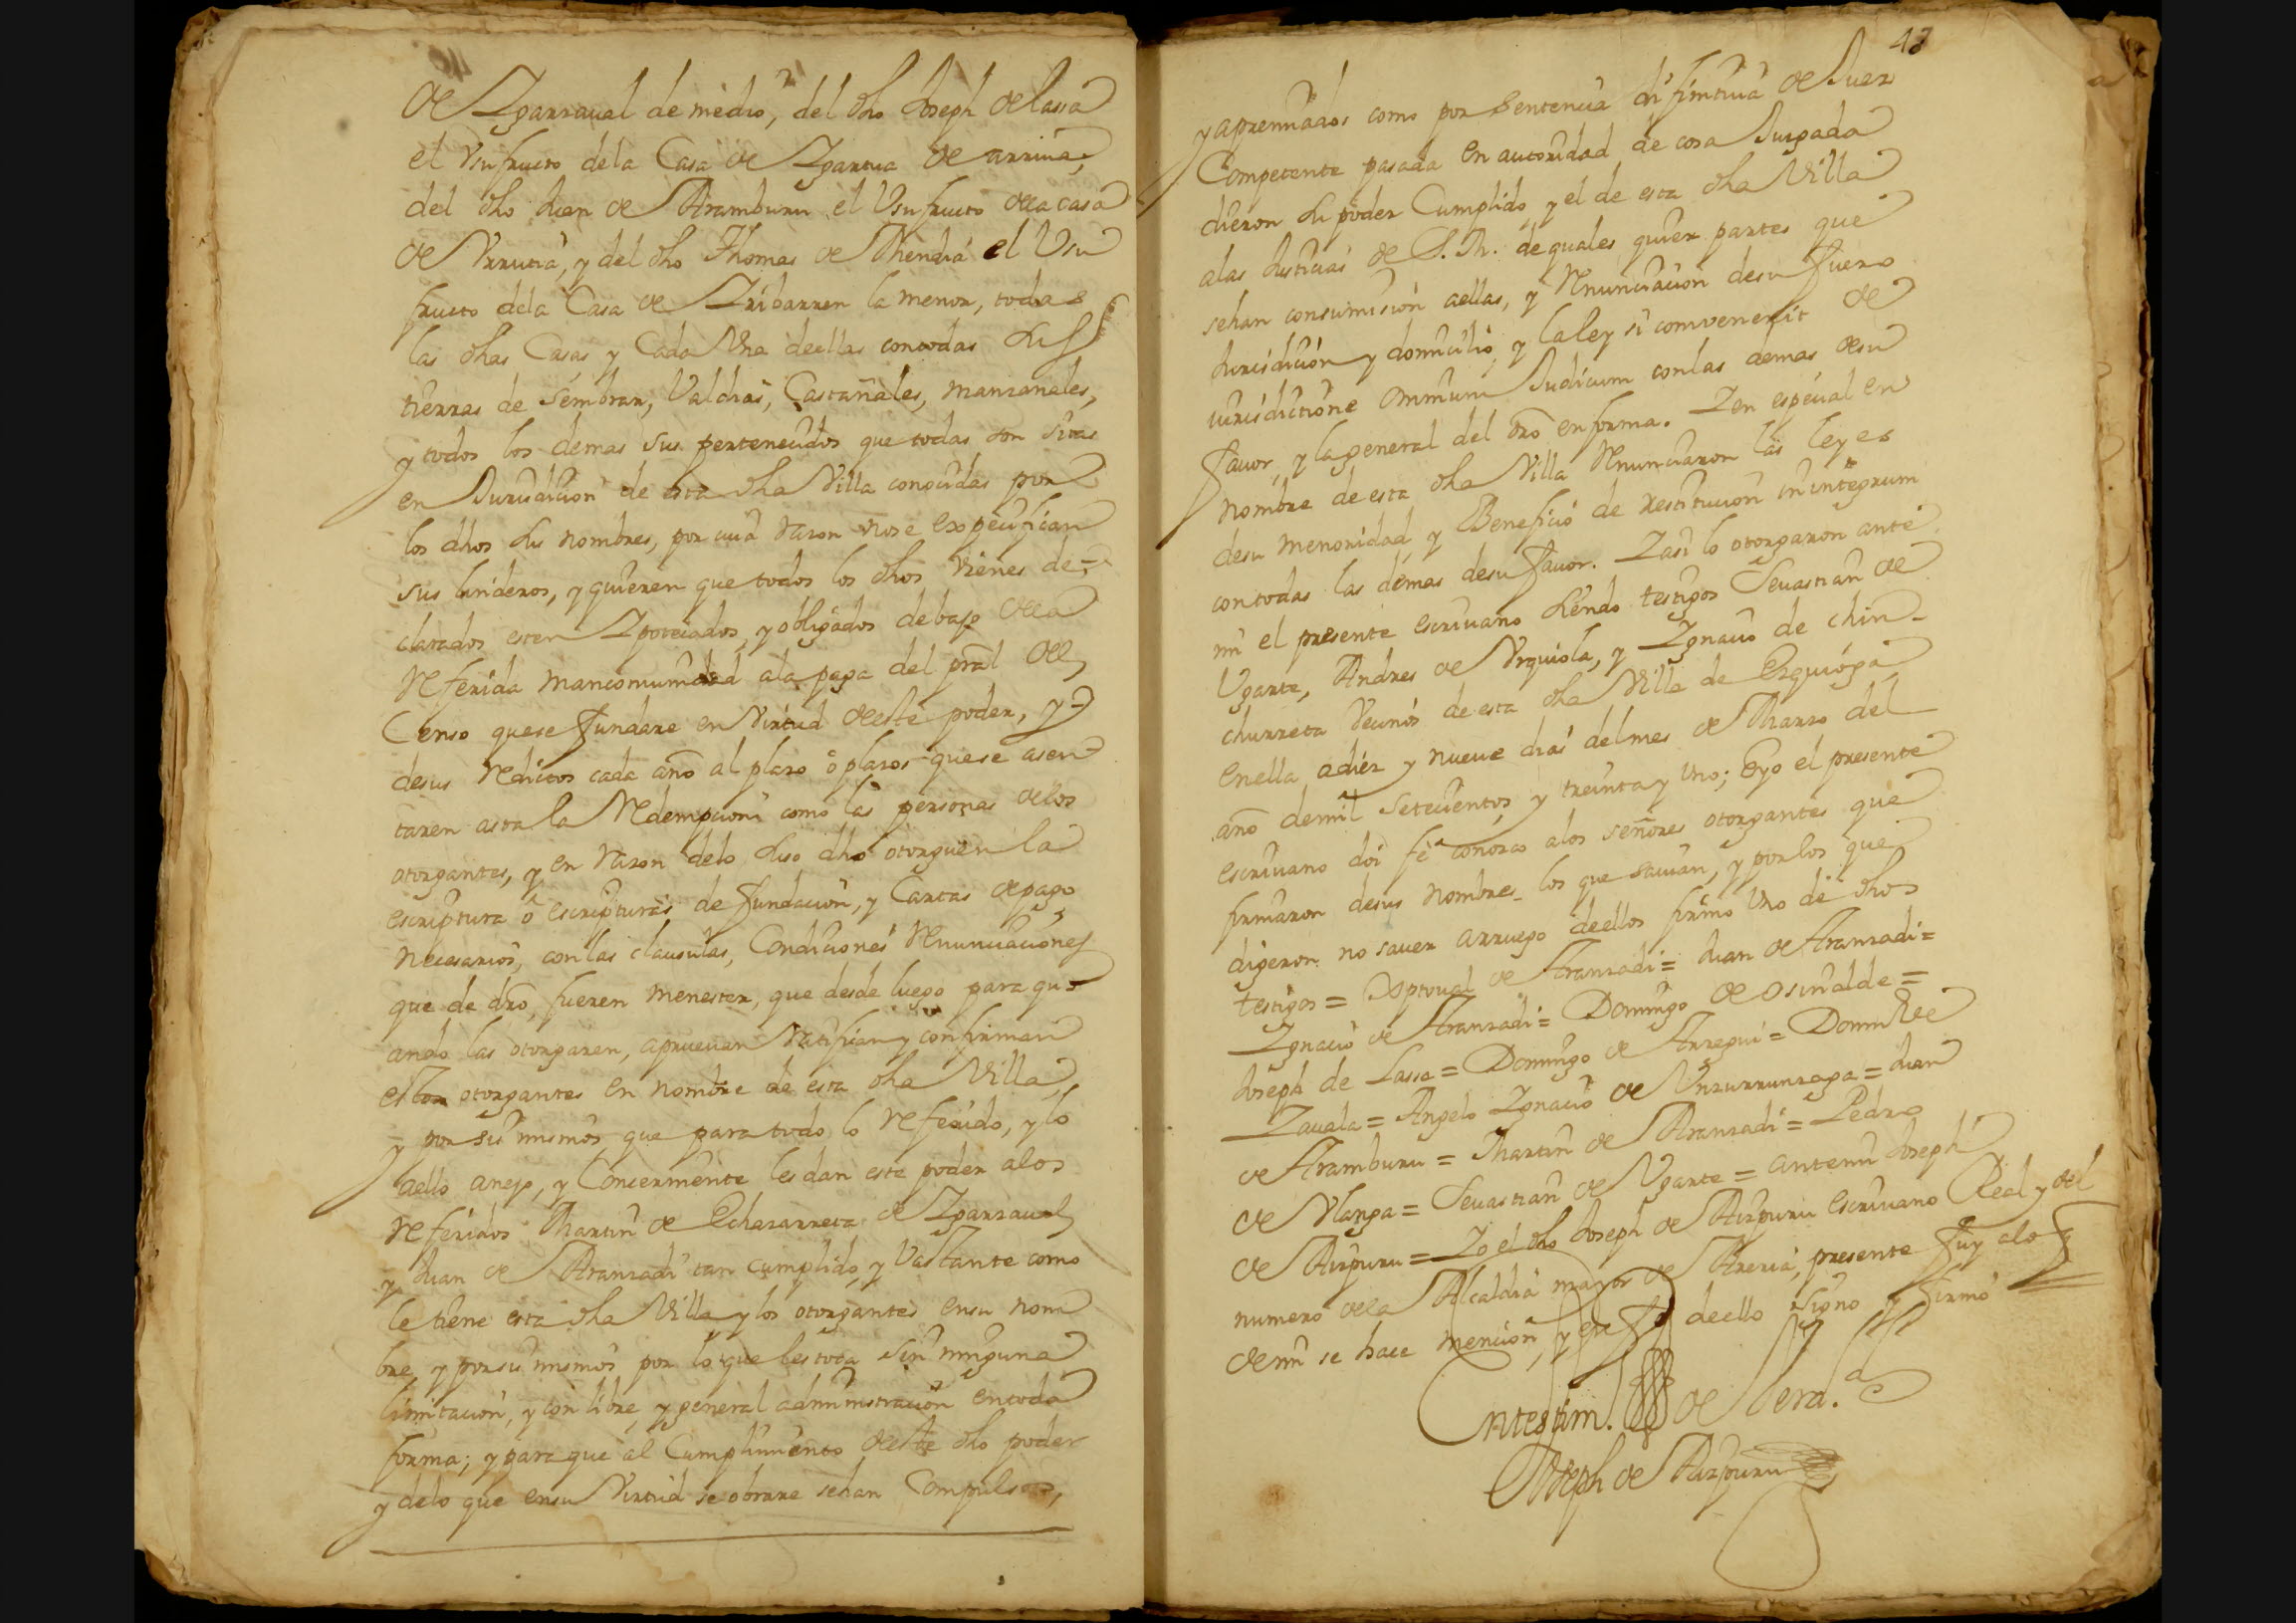 de Ygarraval de medio, del dho Joseph de lassa
el Vsufructo dela Casa de Ygartua de arriua,
del dho Juan de Aramburu el Vsufructo dela casa
de Vrrutia, y del dho Thomas de Mendia el Vsu
fructo dela Casa de Yribarren la menor, todas
las dhas Casas, y Cada Vna deellas contodas sus
tierras de sembrar, Valdias, Castañales, manzanales,
y todos los demas sus pertenecidos que todas son sitas
en Jurisdicion de esta dha Villa conocidas por
los dhos sus nombres, por cuia razon nose expecifican
sus linderos, y quieren que todos los dhos vienes de=
clarados esten Ypotecados, y obligados debajo dela
Referida mancomunidad ala paga del pral del
Censo quese fundare en Virtud deeste poder, y
desus Reditos cada año al plazo ô plazos quese asen
taren asta la Redempcion como las personas delos
otorgantes, y en razon delo suso dho otorguen la
escriptura ô escripturas de fundacion, y Cartas depago
necesarios, conlas clausulas, Condiciones Renunciaciones
que de dro, fueren menester, que desde luego para qu=
ando las otorgaren, aprueuan Ratifican y confirman
estos otorgantes en nombre de esta dha Villa,
y por si mismos, que paratodo lo Referido, y lo
aello anejo, y Concerniente les dan este poder alos
Referidos Martin de Echazarreta de Ygarraual
y Juan de Aranzadi tan cumplido, y Vastante como
le tiene esta dha Villa y los otorgantes ensu nom
bre, y porsi mismos por lo que lestoca sin ninguna
limitacion, y con libre, y general administracion entoda
forma; y paraque al Cumplimiento deeste dho poder
y delo que ensu Virtud se obrare sehan Compulsos,
43
y apremiados como por sentencia difinitiua de Juez
Competente pasada en autoridad de cosa Juzgada
dieron su poder Cumplido, y el de esta dha Villa
alas Justicias de S. M. de quales quier partes que
sehan consumision aellas, y Renunciacion desu fuero
Jurisdicion y domicilio, y laley si convenerit de
iurisdictione omnium Judicum conlas demas desu
fauor, y lageneral del dro enforma. Y en especial en
nombre de esta dha Villa Renunciaron las leyes
desu menoridad, y Beneficio de restitucion in integrum
contodas las demas desu fauor. Y asi lo otorgaron ante
mi el presente escriuano siendo testigos Seuastian de
Vgarte, Andres de Vrquiola, y Ygnacio de chin-
churreta Vecinos de esta dha Villa de Ezquioga
enella adiez y nueue dias delmes de Marzo del
año demil setecientos y treinta y Vno; Eyo el presente
escriuano doi fé conozco alos señores otorgantes que
firmaron desus nombres los que sauian, y porlos que
digeron no sauer arruego deellos firmo Vno de dhos
testigos = Xptoual de Aranzadi = Juan de Aranzadi =
Ygnacio de Aranzadi = Domingo de osinalde =
Joseph de Lassa = Domingo de Arregui = Domingo de
Zauala = Angelo Ygnacio de Vnzurrunzaga = Juan
de Aramburu = Martin de Aranzadi = Pedro
de Vlanga = Seuastian de Vgarte = antemi Joseph
de Aizpuru = Yo el dho Joseph de Aizpuru escriuano Real y del
numero dela Alcaldia mayor de Areria, presente fuy alo q
demi se hace mencion, y en fe deello signo y firmo
Entestim. de Verd.
Joseph de Aizpuru